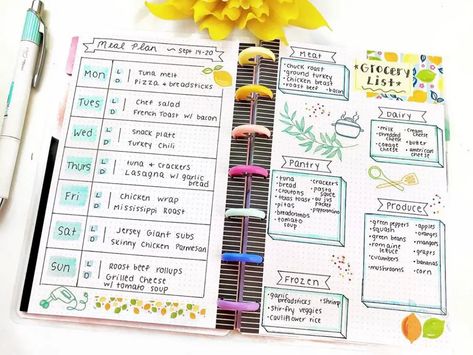 Meal Plan ~ Sept 14-20
Mon
L Tuna melt
D Pizza & breadsticks
Tues
L Chef salad
D French Toast w/ bacon
Wed
L Snack plate
D Turkey Chili
Thurs
L Tuna & crackers
D Lasagna w/ garlic
bread
Fri
L Chicken wrap
D Mississippi Roast
Sat
L Jersey Giant subs
D Skinny Chicken Parmesan
Sun
L Roast beef rollups
D Grilled Cheese
w/ tomato soup
Meat
• chuck roast
• ground turkey
• chicken breast
• roast beef • bacon
*Grocery
List*
Dairy
• milk
• shredded
cheese
• cottage
cheese
• cream
cheese
• butter
• american
cheese
Pantry
• tuna
• bread
• croutons
• texas toast
• pitas
• breadcrumbs
• tomato
soup
• crackers
• pasta
sauce
• au jus
packet
• pepperoncini
Produce
• green peppers
• squash
• green beans
• romaine
lettuce
• cucumbers
• mushrooms
• apples
• oranges
• mangoes
• grapes
• bananas
• corn
Frozen
• garlic
breadsticks
• shrimp
• stir-fry veggies
• cauliflower rice